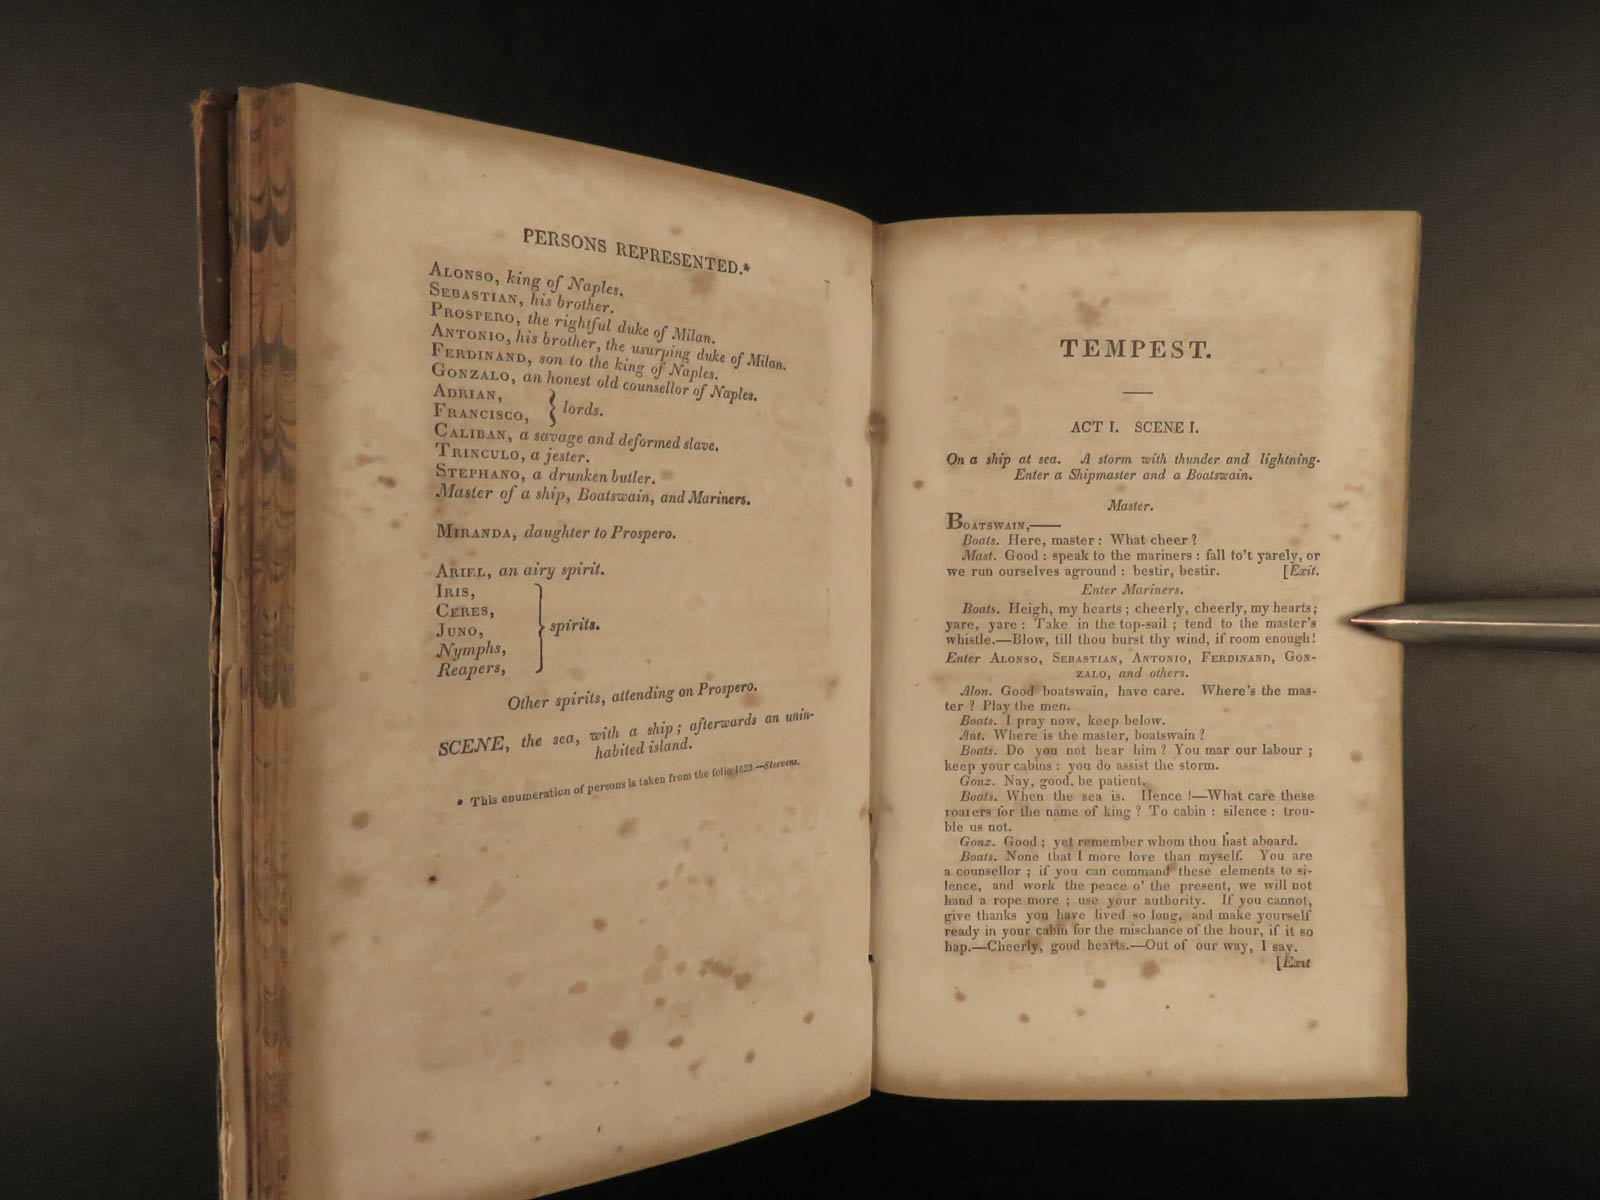 PERSONS REPRESENTED.*
ALONSO, king of Naples.
SEBASTIAN, his brother.
PROSPERO, the rightful duke of Milan.
ANTONIO, his brother, the usurping duke of Milan.
FERDINAND, son to the king of Naples.
GONZALO, an honest old counsellor of Naples.
ADRIAN,
FRANCISCO, } lords.
CALIBAN, a savage and deformed slave.
TRINCULO, a jester.
STEPHANO, a drunken butler.
Master of a ship, Boatswain, and Mariners.
MIRANDA, daughter to Prospero.
ARIEL, an airy spirit.
IRIS,
CERES,
JUNO, } spirits.
Nymphs,
Reapers,
Other spirits, attending on Prospero.
SCENE, the sea, with a ship; afterwards an unin-
habited island.
* This enumeration of persons is taken from the folio 1623.—Steevens.
TEMPEST.
ACT I. SCENE I.
On a ship at sea. A storm with thunder and lightning.
Enter a Shipmaster and a Boatswain.
Master.
BOATSWAIN,——
Boats. Here, master : What cheer ?
Mast. Good : speak to the mariners : fall to't yarely, or
we run ourselves aground : bestir, bestir. [Exit.
Enter Mariners.
Boats. Heigh, my hearts ; cheerly, cheerly, my hearts;
yare, yare : Take in the top-sail ; tend to the master's
whistle.—Blow, till thou burst thy wind, if room enough!
Enter ALONSO, SEBASTIAN, ANTONIO, FERDINAND, GON-
ZALO, and others.
Alon. Good boatswain, have care. Where's the mas-
ter ? Play the men.
Boats. I pray now, keep below.
Ant. Where is the master, boatswain ?
Boats. Do you not hear him ? You mar our labour ;
keep your cabins : you do assist the storm.
Gonz. Nay, good, be patient.
Boats. When the sea is. Hence !—What care these
roarers for the name of king ? To cabin : silence : trou-
ble us not.
Gonz. Good ; yet remember whom thou hast aboard.
Boats. None that I more love than myself. You are
a counsellor ; if you can command these elements to si-
lence, and work the peace o' the present, we will not
hand a rope more ; use your authority. If you cannot,
give thanks you have lived so long, and make yourself
ready in your cabin for the mischance of the hour, if it so
hap.—Cheerly, good hearts.—Out of our way, I say.
[Exit